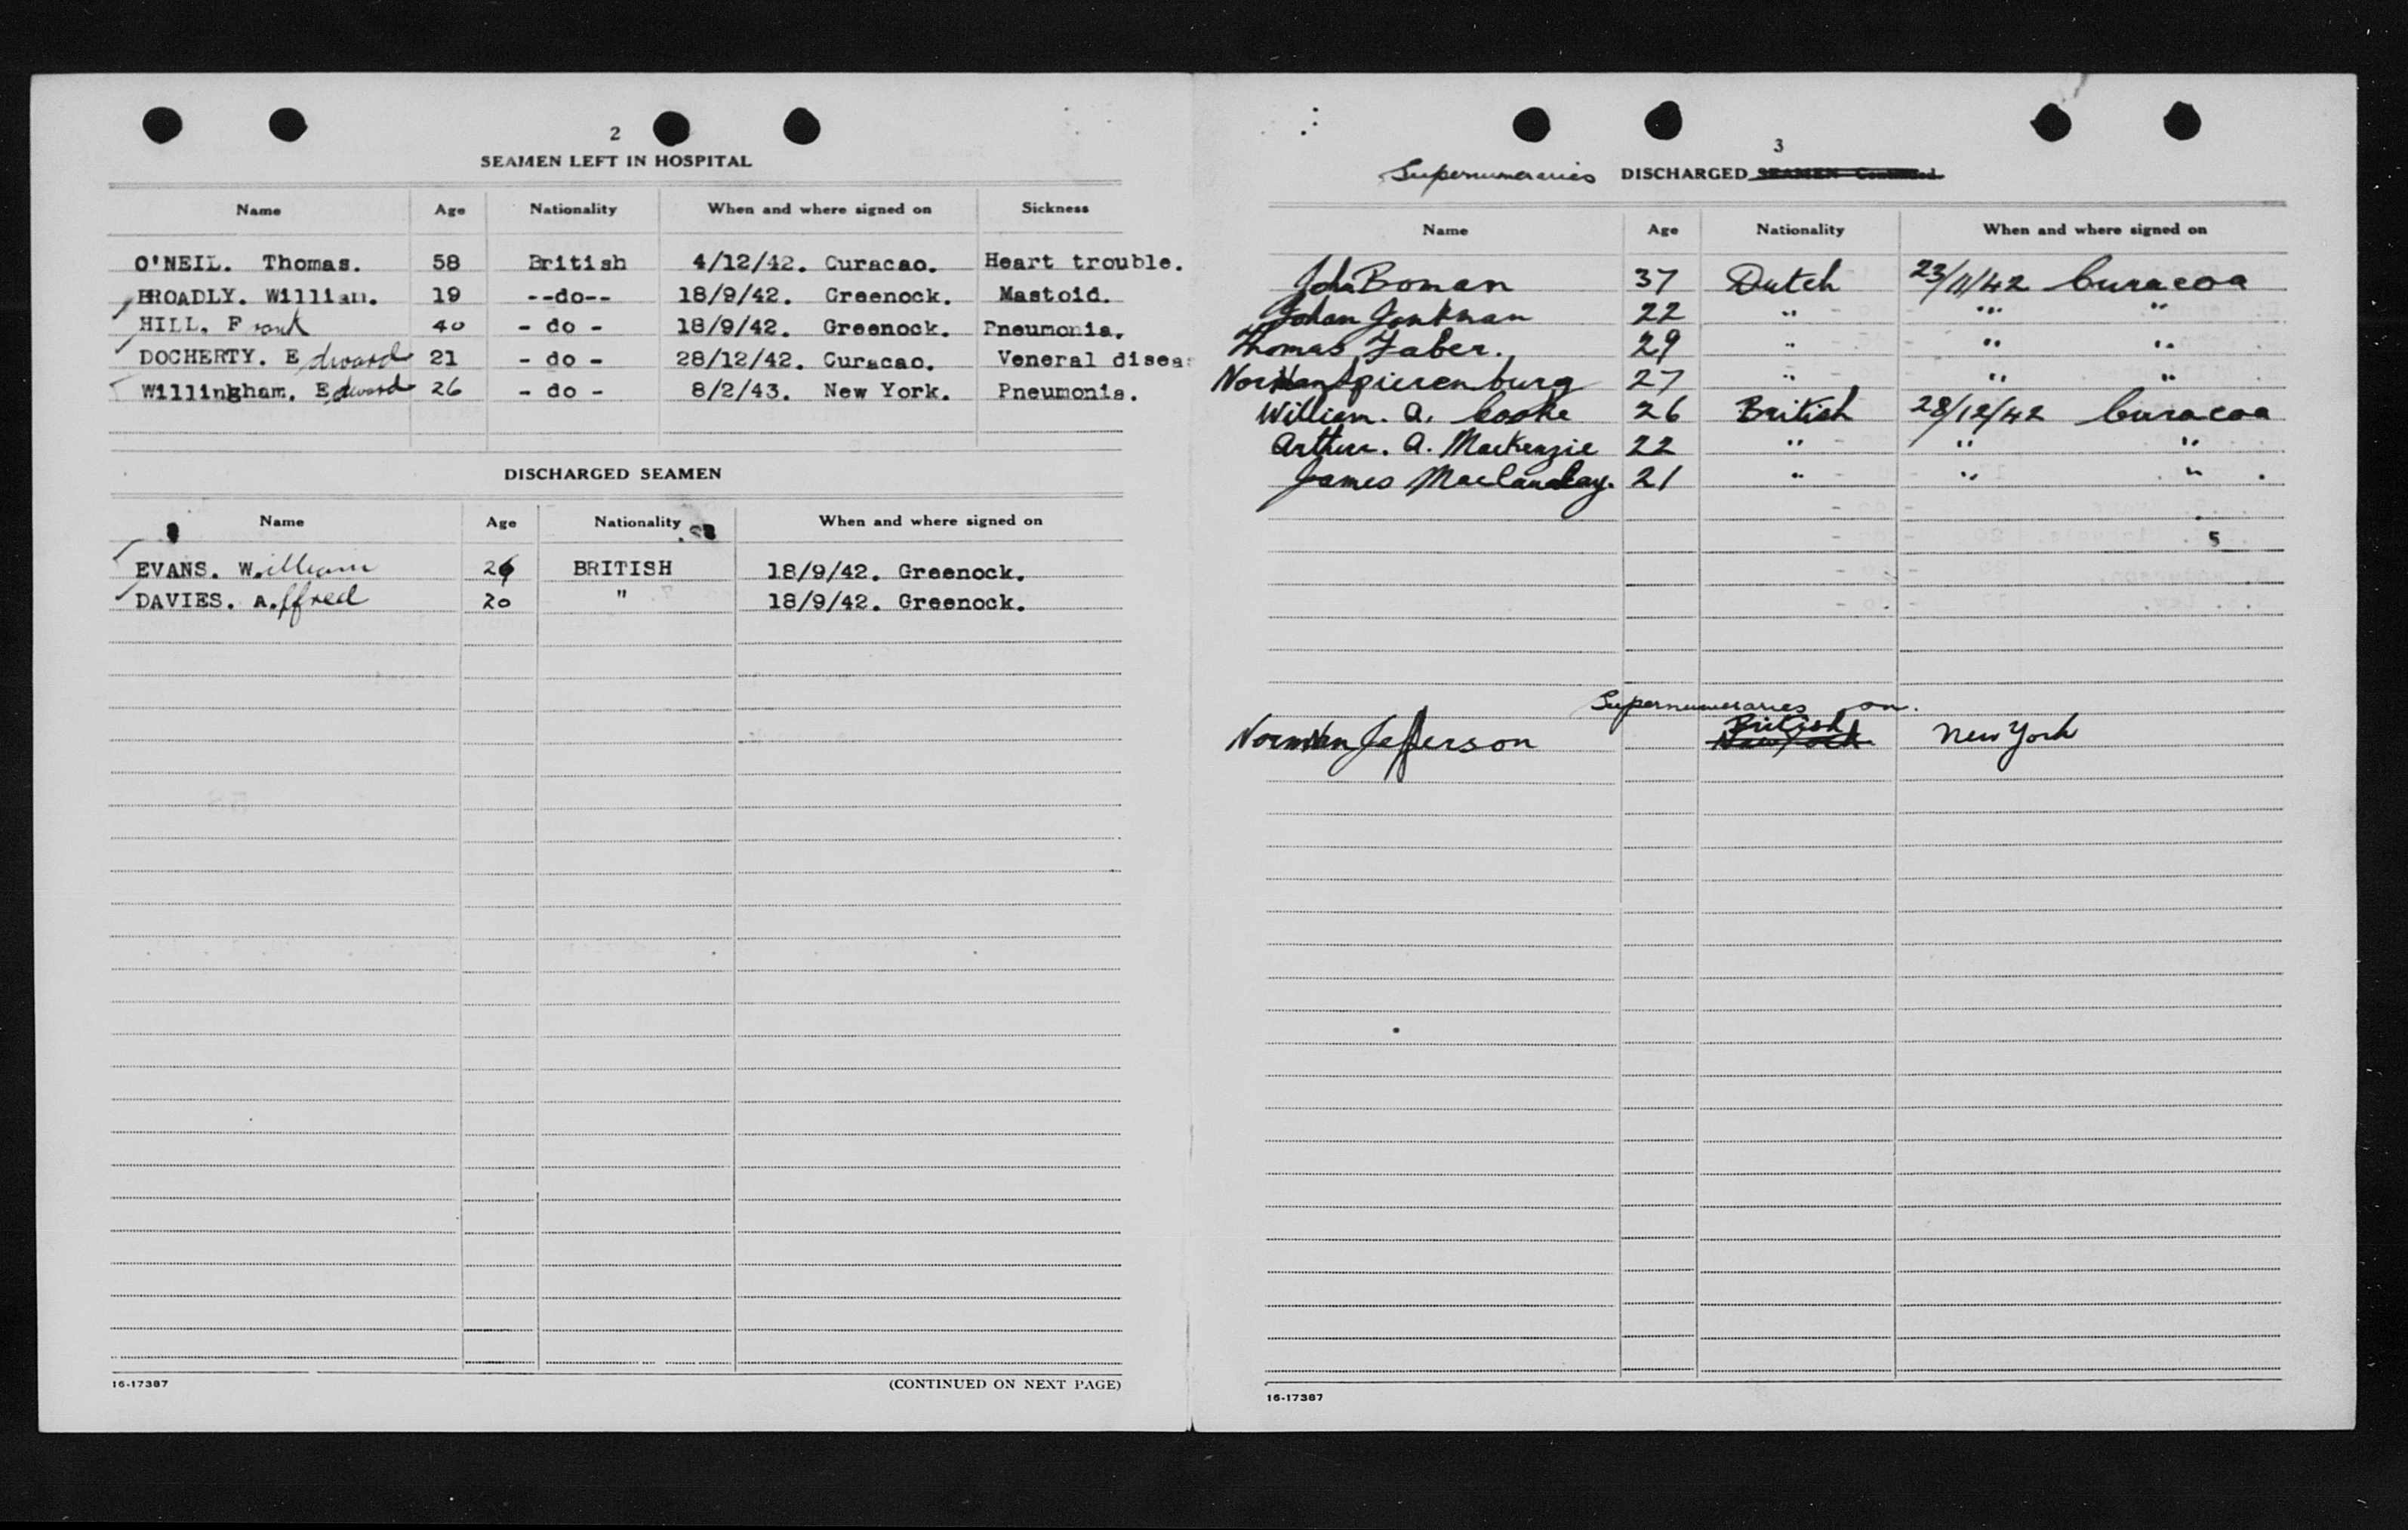 2
SEAMEN LEFT IN HOSPITAL
Name Age Nationality When and where signed on Sickness
O'NEIL. Thomas. 58 British 4/12/42. Curacao. Heart trouble.
BROADLY. William. 19 --do-- 18/9/42. Greenock. Mastoid.
HILL. Frank 40 - do - 18/9/42. Greenock. Pneumonia.
DOCHERTY. Edward 21 - do - 28/12/42. Curacao. Veneral diseas
Willingham. Edward 26 - do - 8/2/43. New York. Pneumonia.
DISCHARGED SEAMEN
Name Age Nationality When and where signed on
EVANS. William BRITISH 18/9/42. Greenock.
DAVIES. Alfred 20 " 18/9/42. Greenock.
16-17387 (CONTINUED ON NEXT PAGE)
3
Supernumeraries DISCHARGED SEAMEN Continued
Name Age Nationality When and where signed on
John Boman 37 Dutch 23/11/42 Curacoa
Johan Jonkman 22 " " "
Thomas Faber. 29 " " "
Norman Spierenburg 27 " " "
William. A. Cooke 26 British 28/12/42 Curacoa
Arthur. A. MacKenzie 22 " " "
James 21 " " "
5
Supernumeraries on.
Norman Jefferson British New York New York
16-17387